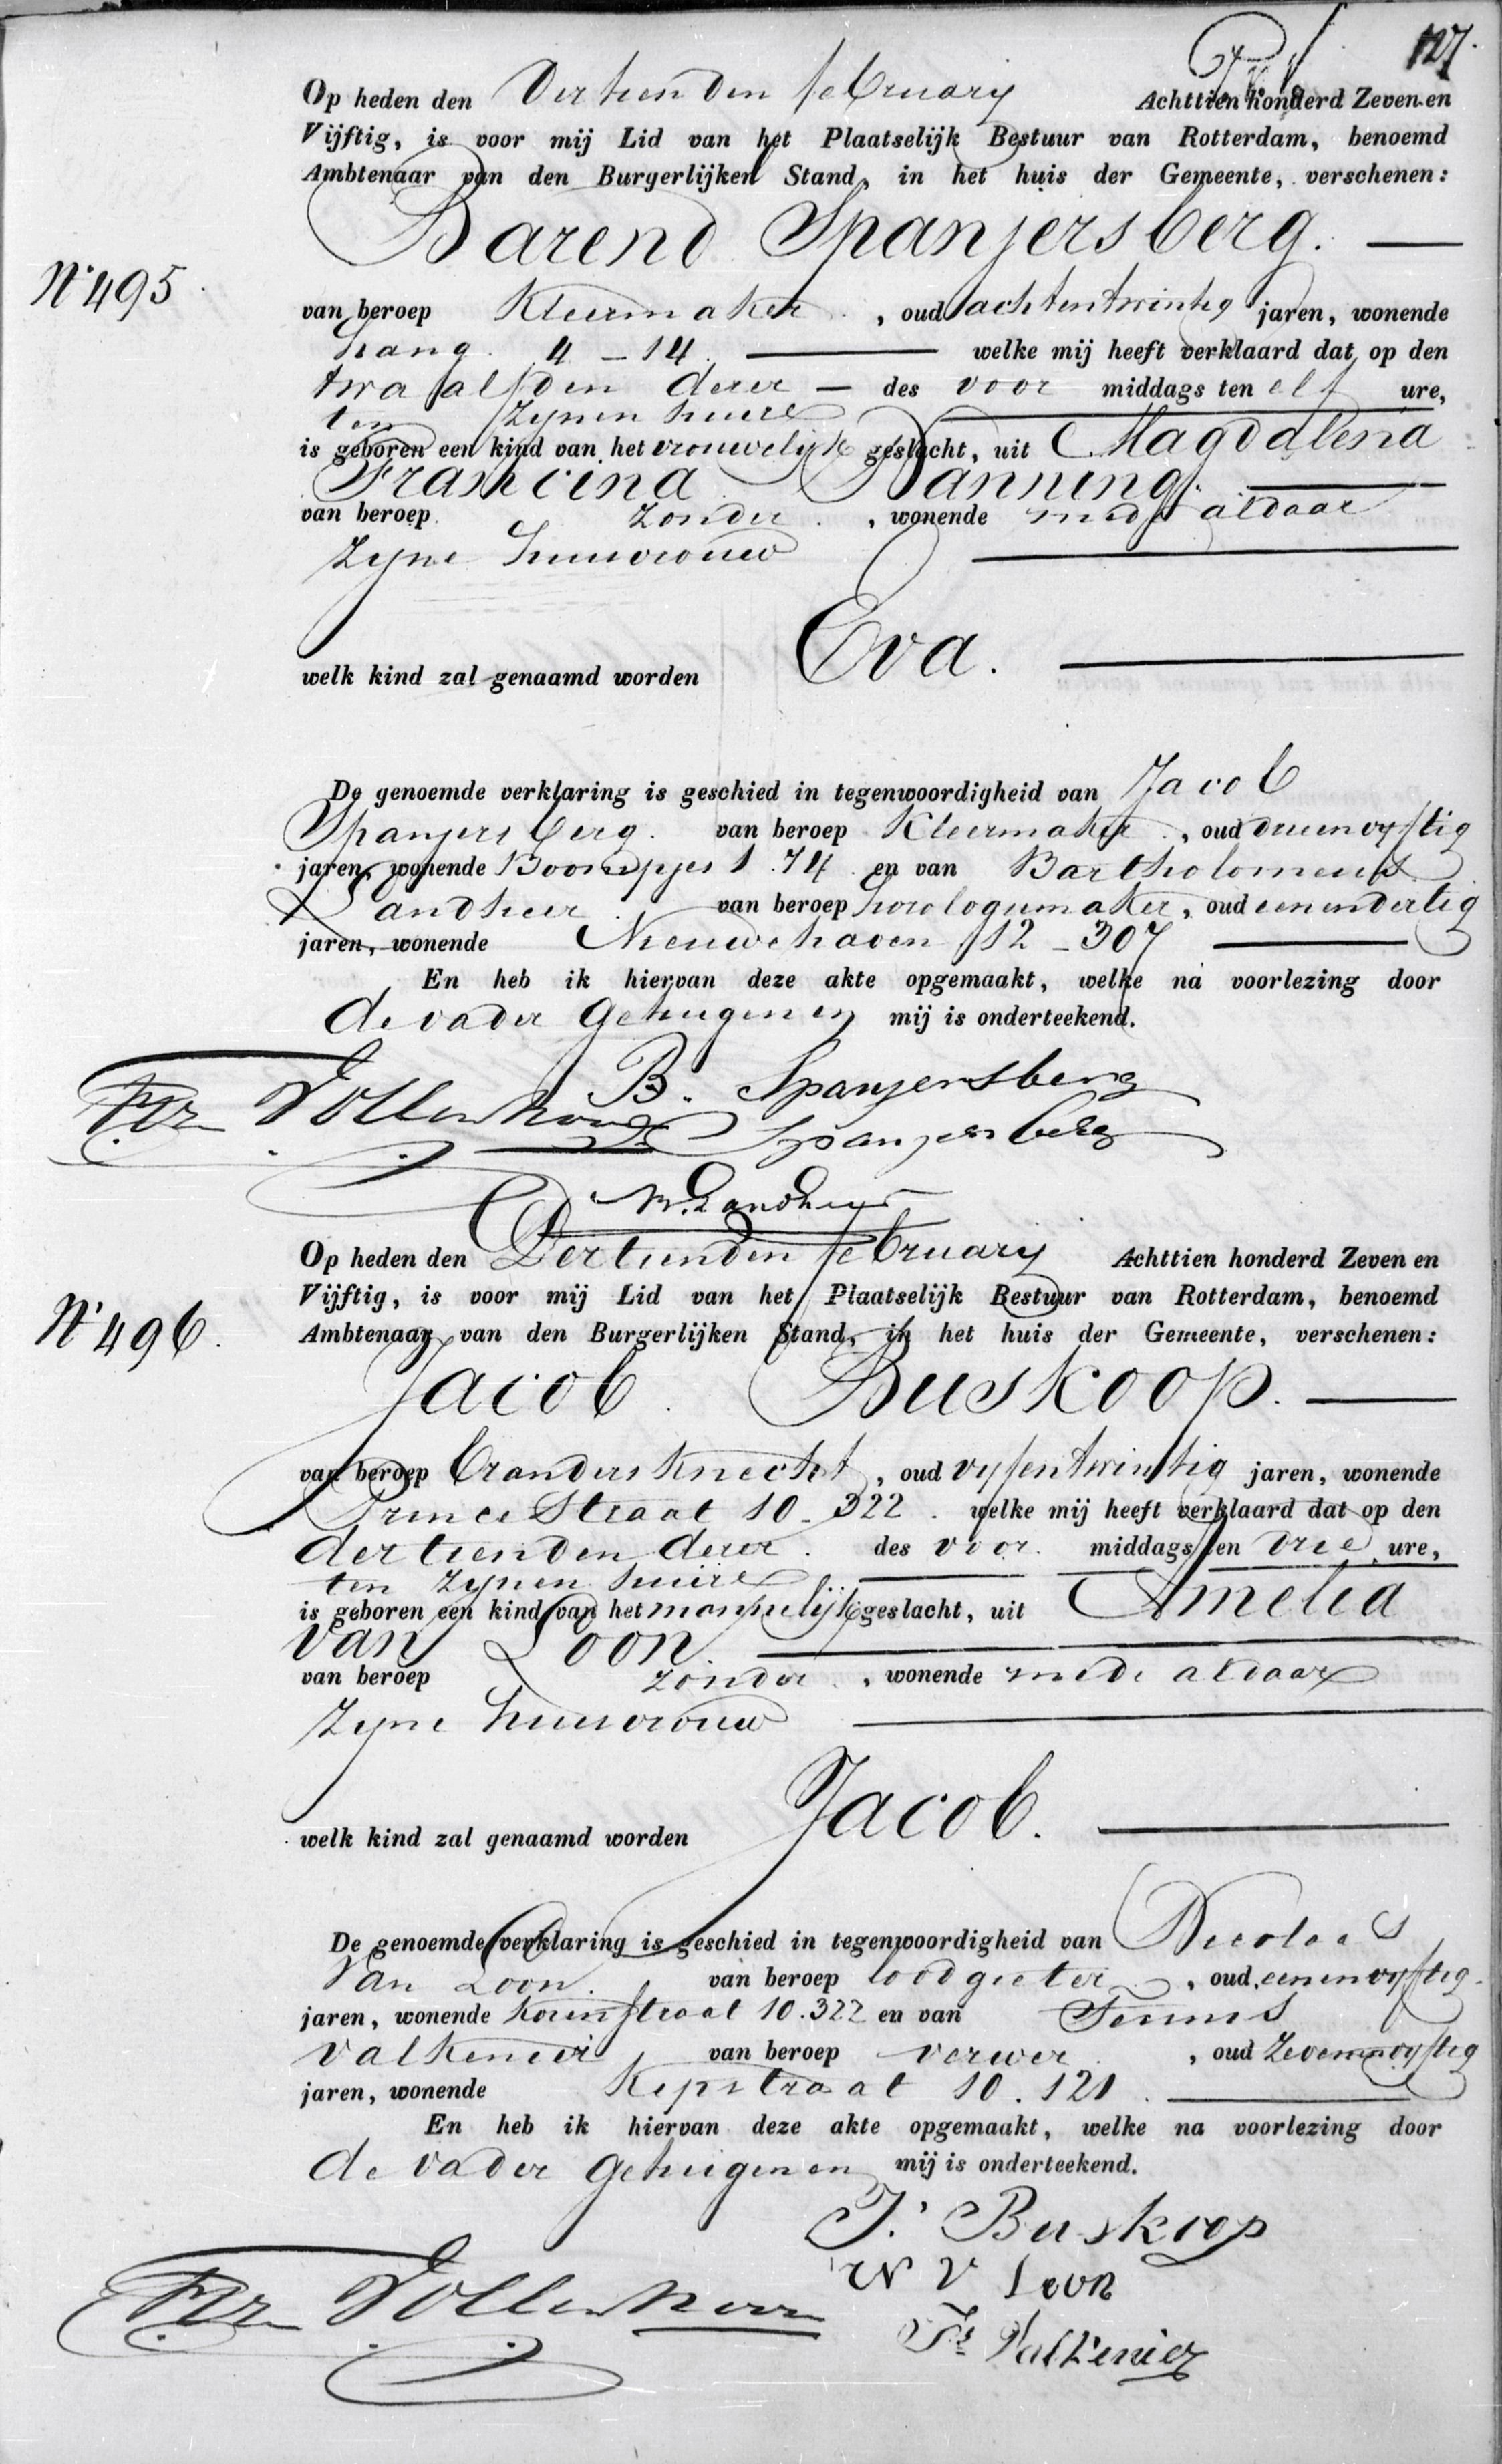 127.
Op heden den Dertienden february Achttien honderd Zeven en
Vijftig, is voor mij Lid van het Plaatselijk Bestuur van Rotterdam, benoemd
Ambtenaar van den Burgerlijken Stand, in het huis der Gemeente, verschenen:
Barend Spanjersberg.
N° 495.
van beroep Kleermaker, oud achtentwintig jaren, wonende
hang. 4 - 14. welke mij heeft verklaard dat op den
twaalfden dezer - des voor middags ten elf ure,
ten zynen huize
is geboren een kind van het vrouwelijk geslacht, uit Magdalena
Francina Banning.
van beroep zonder, wonende mede aldaar
zyne huisvrouw
Eva.
welk kind zal genaamd worden
De genoemde verklaring is geschied in tegenwoordigheid van Jacob
Spanjersberg. van beroep Kleermaker, oud drieenvyftig
jaren, wonende Boompjes 1.74 en van Bartholomeus
Landheer van beroep horologiemaker, oud eenendertig
jaren, wonende Nieuwehaven 12 - 307
En heb ik hiervan deze akte opgemaakt, welke na voorlezing door
de vader getuigen en mij is onderteekend.
B. Spanjersberg
Vollenhoven
Spanjersberg
B. Landheer
Op heden den Dertienden february Achttien honderd Zeven en
Vijftig, is voor mij Lid van het Plaatselijk Bestuur van Rotterdam, benoemd
N° 496.
Ambtenaar van den Burgerlijken Stand, in het huis der Gemeente, verschenen:
Jacob Buskoop.
van beroep brandersknecht, oud vyfentwintig jaren, wonende
Prince Straat 10 - 322. welke mij heeft verklaard dat op den
dertienden dezer. des voor. middags ten drie ure,
ten zynen huize
is geboren een kind van het mannelijk geslacht, uit Amelia
van Loon.
van beroep zonder, wonende mede aldaar
zyne huisvrouw
Jacob.
welk kind zal genaamd worden
De genoemde verklaring is geschied in tegenwoordigheid van Nicolaas
van Loon. van beroep loodgieter, oud eenenvyftig
jaren, wonende Korenstraat 10.322 en van Teunis
Valkenier van beroep verwer, oud zevenenvyftig
jaren, wonende Kipstraat 10.121
En heb ik hiervan deze akte opgemaakt, welke na voorlezing door
de vader getuigen en mij is onderteekend.
J. Buskoop
N V Loon
Vollenhoven
Ts Valkenier